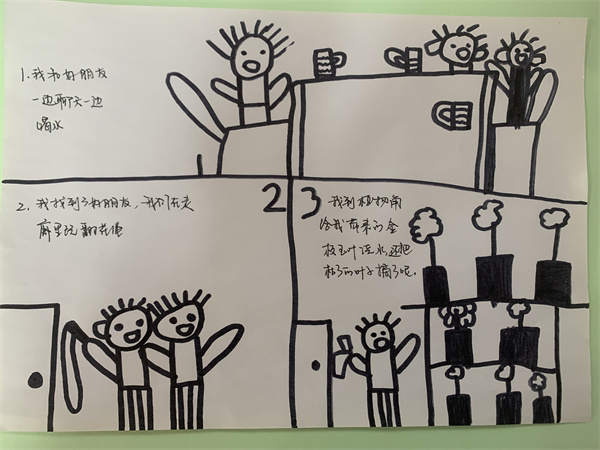 1. 我和好朋友
一边聊天一边
喝水
2. 我找到了好朋友，我们在走
廊里玩翻花绳
2
3
我到植物角
给我带来的金
枝玉叶浇水，还把
枯了的叶子摘了呢。